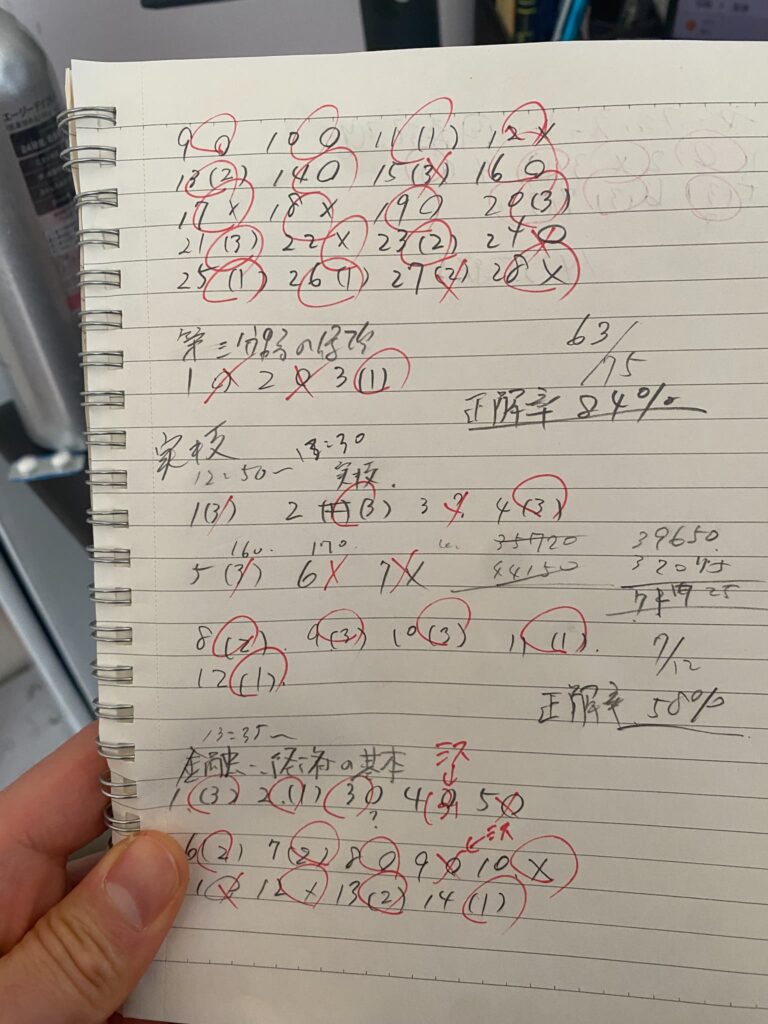 9 O 10 O 11 (1) 12 X
13 (2) 14 O 15 (3) 16 O
17 X 18 X 19 O 20 (3)
21 (3) 22 X 23 (2) 24 O
25 (1) 26 (1) 27 (2) 28 X
第三分野の保険
1 O 2 O 3 (1)
63/75
正解率 84%
実技
12=50~ 13=30
実技.
1 (3) 2 (3) 3 ? 4 (3)
160. 170.
35720
39650
5 (3) 6 X 7 X
44150
32075
8 (2) 9 (3) 10 (3) 11 (1).
7/12
12 (1).
正解率 58%
13=35~
金融・経済の基本
ミス
1 (3) 2 (1) 3 O 4 5 O
?
ミス
6 (2) 7 (2) 8 O 9 O 10 X
12 X 13 (2) 14 (1)